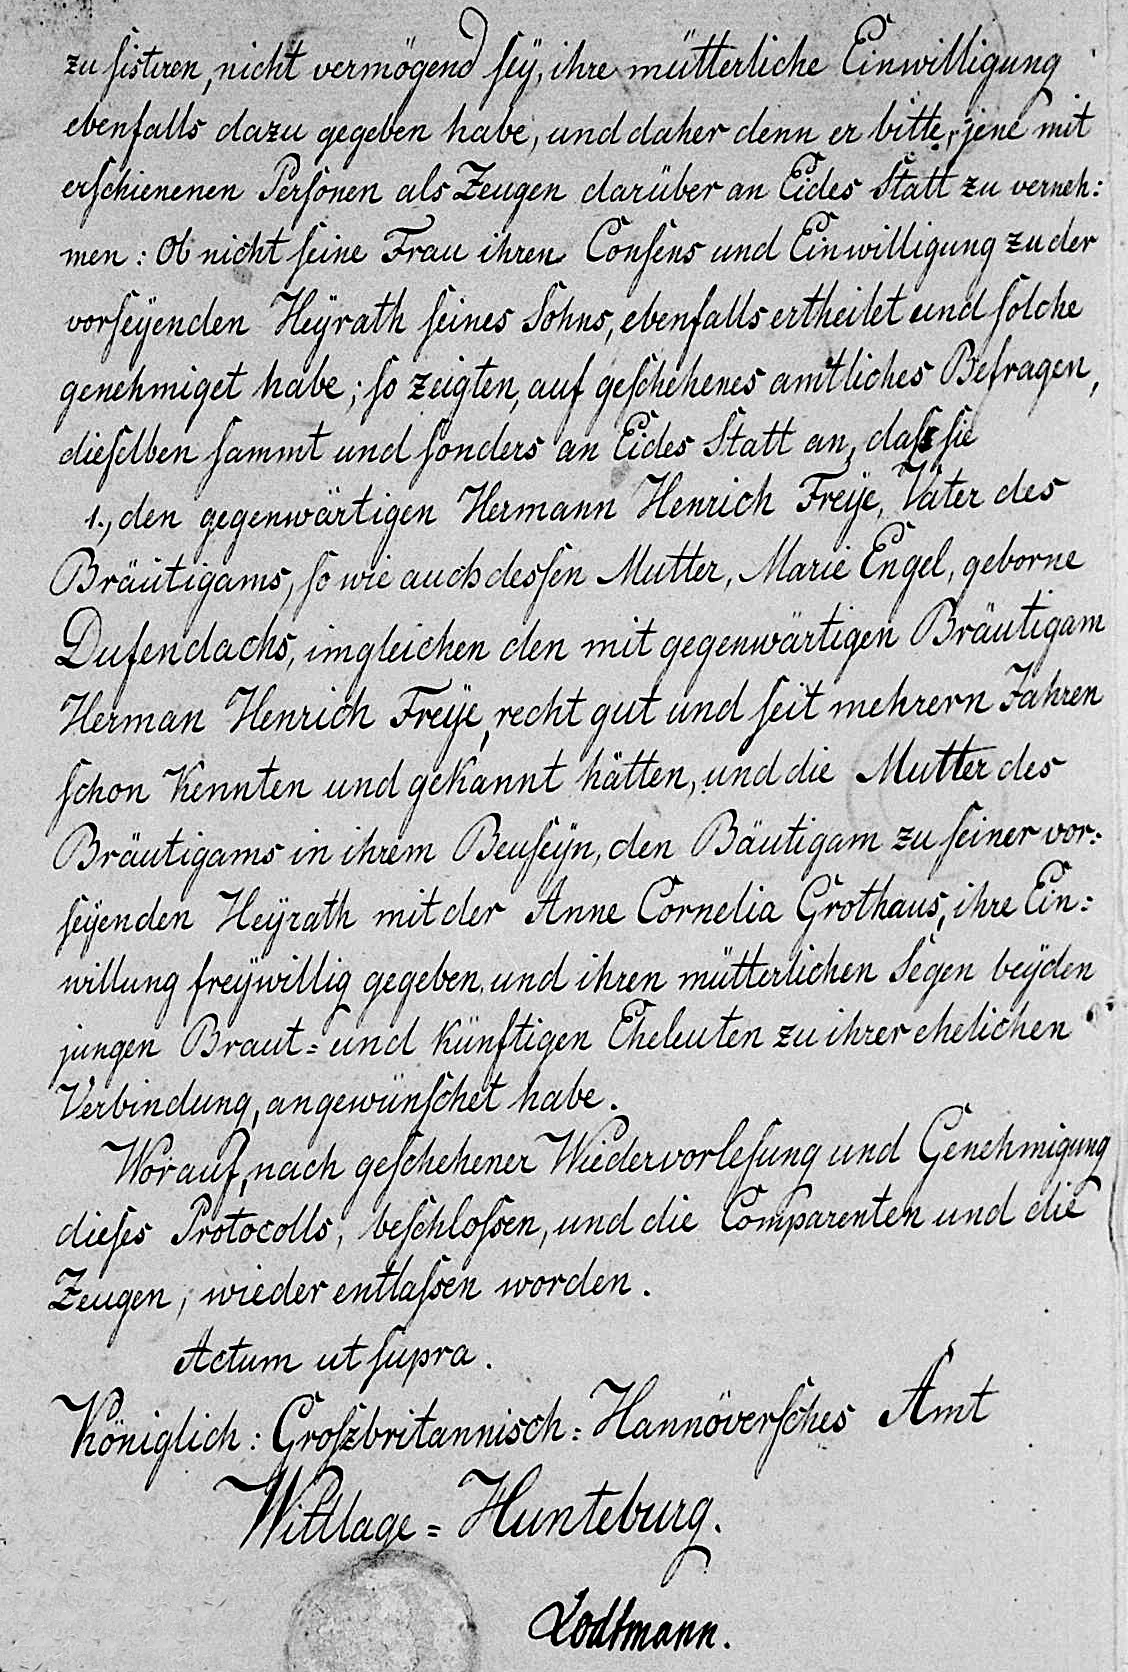 zu sistiren, nicht vermögend seÿ, ihre mütterliche Einwilligung
ebenfalls dazu gegeben habe, und daher denn er bitte, jene mit
erschienenen Personen als Zeugen darüber an Eides Statt zu verneh:
men: Ob nicht seine Frau ihren Consens und Einwilligung zu der
vorseÿenden Heÿrath seines Sohns, ebenfalls ertheilet und solche
genehmiget habe; so zeigten, auf geschehenes amtliches Befragen,
dieselben sammt und sonders an Eides Statt an, dass sie
1., den gegenwärtigen Hermann Henrich Freÿe, Vater des
Bräutigams, so wie auch dessen Mutter, Marie Engel, geborne
Dufendachs, imgleichen den mit gegenwärtigen Bräutigam
Herman Henrich Freÿe, recht gut und seit mehrern Jahren
schon kennten und gekannt hätten, und die Mutter des
Bräutigams in ihrem Beuseÿn, den Bäutigam zu seiner vor:
seÿenden Heÿrath mit der Anne Cornelia Grothaus, ihre Ein=
willung freÿwillig gegeben, und ihren mütterlichen Segen beÿden
jungen Braut= und künftigen Eheleuten zu ihrer ehelichen
Verbindung, angewünschet habe.
Worauf, nach geschehener Wiedervorlesung und Genehmigung
dieses Protocolls, beschlossen, und die Comparenten und die
Zeugen, wieder entlassen worden.
Actum ut supra.
Königlich: Groszbritannisch=Hannöversches Amt
Wittlage=Hunteburg.
Lodtmann.